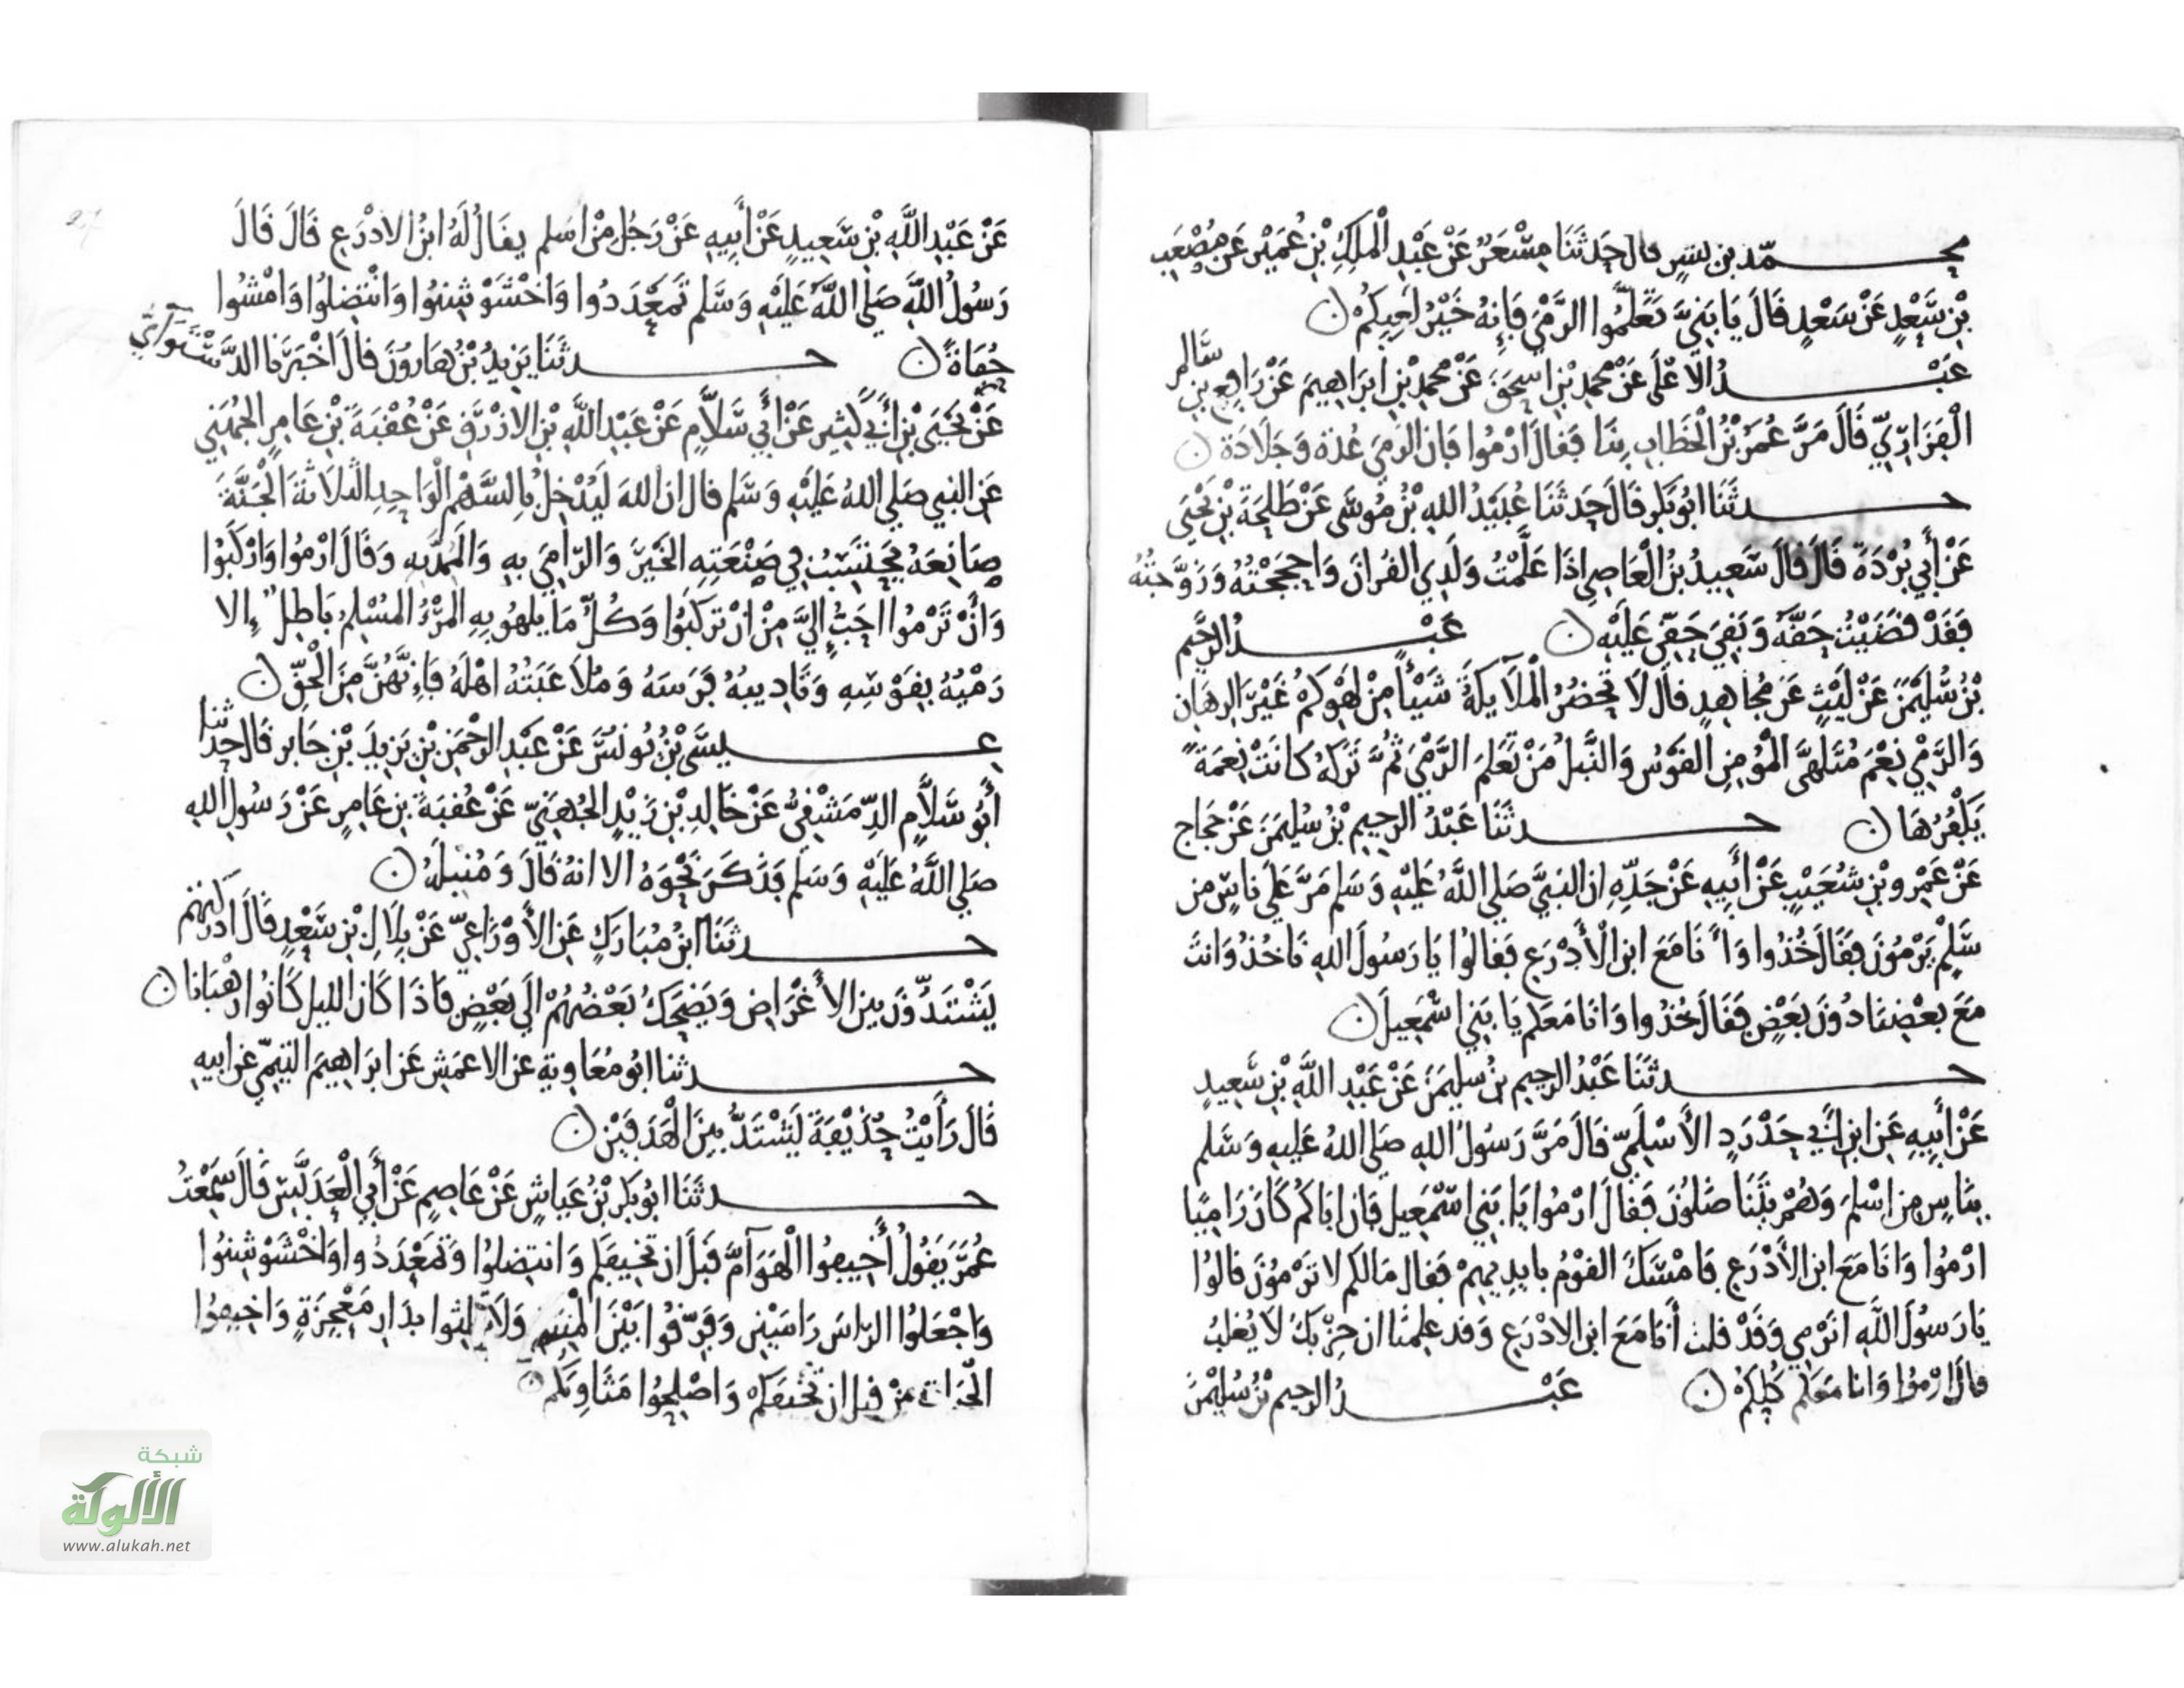 محمد بن بشر قال حَدثَنَا مِسْعَرٌ عَنْ عَبْدِ الْمَلِكِ بْنِ عُمَيْرٍ عَن مُصْعَبِ
بْنِ سَعْدٍ عَنْ سَعْدٍ قَالَ يَا بَنِيَّ تَعَلَّمُوا الرَّمْيَ فَإِنهُ خَيْرُ لَعِبِكُمْ ن
عَبْدُ الأعْلَى عَنْ محمدِ بْنِ اسحَقَ عَنْ محمدِ بْنِ ابرَاهِيمَ عَنْ رَافِع بن سالم
الْفَزَارِيِّ قَالَ مَرَّ عُمَرُ بْنُ الْخَطاب بِنَا فَقالَ ارْمُوا فَان الرَمىَ عُدة وَجَلَادَة ن
حدثَنَا ابُو بَكر قَالَ حَدثَنَا عُبَيْدُ اللهِ بْنُ مُوسَى عَنْ طَلحَةَ بْنِ يَحْيَى
عَنْ أَبِي بُرْدَةَ قَالَ قَالَ سَعِيدُ بْنُ الْعَاصِ اذَا عَلَّمْتُ وَلَدِي القُرانَ وَاحجَجْتُهُ وَزَوَّجتُهُ
فَقَدْ قَضَيْتُ حَقَّهُ وَبَقِيَ حَقِّي عَلَيْهِ ن عَبْدُ الرحيم
بْنُ سُلَيْمَنَ عَنْ لَيْثٍ عَنْ مُجَاهِدٍ قالَ لَا تَحضُرُ الْمَلَائِكَةُ شَيْئاً مِنْ لَهْوِكُمْ غَيْرَ الرِهَان
وَالرَّمْيِ نِعْمَ مُتَلَهَّى الْمُؤمِنِ القَوْسُ وَالنَّبلُ مَنْ تعَلَمَ الرَّمْيَ ثُمَّ تَرَكَهُ كَانَتْ نِعمَةً
يَكْفُرُهَا ن حدثَنَا عَبْدُ الرحِيمِ بْنُ سُلَيمَنَ عَنْ حَجَاج
عَنْ عَمْرِو بْنِ شُعَيْبٍ عَنْ أَبِيهِ عَنْ جَدِّهِ ان النبيَّ صَلى اللَّهُ عَلَيْهِ وَسَلم مَرَّ عَلَى نَاسٍ مِن
سَلِمْ يَرْمُونَ فَقَالَ خُذُوا وَأَنَا مَعَ ابن الْأَدْرَعِ فَقالُوا يَا رَسُولَ اللهِ نَاخُذُ وَانتَ
مَعَ بعْضِنَا دُونَ بَعْضٍ فَقَالَ خُذُوا وَانَا مَعَكم يَا بَني اسْمَعِيلَ ن
حدثَنَا عَبْدُ الرحِيم بنُ سليمَنَ عَنْ عَبْدِ اللَّهِ بْنِ سَعِيدٍ
عَنْ أَبِيهِ عَنِ ابن أَبي حَدْرَدٍ الأَسْلَمِيِّ قَالَ مَرَّ رَسُولُ اللهِ صَلى اللهُ عَليهِ وَسَلم
بنَاسٍ مِن اسْلَمَ وَهُمْ يتَنَاضَلُونَ فَقالَ ارْمُوا يَا بَنِي اسْمَعِيل فَان ابَاكُمْ كَانَ رَامِيًا
ارْمُوا وَانَا مَعَ ابن الأَدْرَعِ فَامْسَكَ القوْمُ بايدِيهِمْ فَقالَ مَالكم لا تَرْمُونَ قالُوا
يَا رَسُولَ اللَّهِ انَرْمِي وَقَدْ قلت أَنَا مَعَ ابن الادْرَعِ وَقد عَلِمنَا ان حِزْبَكَ لَا يُغلَبُ
قالَ ارْمُوا وَانا مَعَكم كُلِكُمْ ن عَبْدُ الرحيم بْنُ سُلَيْمَنَ
عَنْ عَبْدِ اللَّهِ بْنِ سَعِيدٍ عَنْ أَبِيهِ عَنْ رَجُلٍ مِنْ اسَلم يقَالُ لَهُ ابنُ الادْرَعِ قَالَ قَالَ
رَسُولُ اللَّهِ صَلى اللَّهُ عَلَيْهِ وَسَلم تَمَعْدَدُوا وَاخْشَوْشِنُوا وَانْتَضِلُوا وَامْشُوا
حُفَاةً ن حدثَنَا يَزيدُ بْنُ هَارُونَ قالَ اخْبَرَنا الدَّسْتَوَائيُّ
عَنْ يَحْيَى بْنِ أَبي كَثِيرٍ عَنْ أَبي سَلَّامٍ عَنْ عَبْدِ اللَّهِ بْنِ الازْرَقِ عَنْ عُقْبَةَ بْنِ عَامِرٍ الجُهَنِي
عَن النبي صَلى اللهُ عَلَيْهِ وَسَلم قال ان اللهَ لَيُدْخِلُ بِالسَّهْمِ الْوَاحِدِ الثلَاثَةَ الْجَنَّةَ
صَانِعَهُ يحْتَسِبُ فِي صَنْعَتِهِ الخَيْرَ وَالرّامِيَ بِهِ وَالمُمِدَّ بِهِ وَقَالَ ارْمُوا وَارْكَبُوا
وَأَنْ تَرْمُوا احَبُّ إِلَيَّ مِنْ انْ تَرْكَبُوا وَكُلّ مَا يلهُو بِهِ الْمَرْءُ المُسْلِمُ بَاطِلٌ إلا
رَمْيُهُ بِقَوْسِهِ وَتَادِيبُهُ فَرَسَهُ وَمُلَاعَبَتُهُ اهْلَهُ فَإِنَّهُنَّ مِنَ الْحَقِّ ن
عِيسَى بْنُ يُونُسَ عَنْ عَبْدِ الرحْمَنِ بْنِ يَزيدَ بْنِ جَابر قَالَ حَدثنَا
أَبُو سَلَّامٍ الدِّمَشْقِيُّ عَنْ خَالِدِ بْنِ زَيْدٍ الجُهَنِيِّ عَنْ عُقبَةَ بنِ عَامِرٍ عَنْ رَسُولِ اللهِ
صَلى اللَّهُ عَلَيْهِ وَسَلم فَذَكَرَ نَحْوَهُ الا انهُ قَالَ وَمُنبِلَهُ ن
حدثَنَا ابنُ مُبَارَكٍ عَنِ الأَوْزَاعِيِّ عَنْ بِلَالِ بْنِ سَعْدٍ قَالَ ادْرَكتُهُم
يَشْتَدُّونَ بين الأَغْرَاض وَيَضْحَكُ بَعْضُهُمْ الَى بَعْضٍ فَاذَا كَانَ الليل كَانُوا رُهْبَانا ن
حدثنا ابُو مُعَاوِيةَ عن الاعمَشِ عَن ابرَاهِيمَ التيمِيِّ عَن ابيهِ
قَالَ رَأَيْتُ حُذَيْفَةَ يَشْتَدُّ بينَ الْهَدَفَيْنِ ن
حدثَنَا ابُو بَكر بْنُ عَيَّاشٍ عَنْ عَاصِمٍ عَنْ أَبي الْعَدَبَّسِ قالَ سَمِعْتُ
عُمَرَ يَقُولُ أَخِيفُوا الْهَوَامَّ قَبلَ ان تخِيفَكم وَانتَضِلُوا وَتَمَعْدَدُوا وَاخْشَوْشِنُوا
وَاجْعَلُوا الرَاسَ رَاسَيْنِ وَفَرِّقُوا بَيْنَ الْمَنِيَّةِ وَلَا تُلِثُّوا بدَارِ مَعْجِزَةٍ وَاخِيفُوا
الحَيَّاتِ مِنْ قبل ان تُخيفَكمْ وَاصْلِحُوا مَثَاوِيَكم ن
شبكة
الألوكة
www.alukah.net